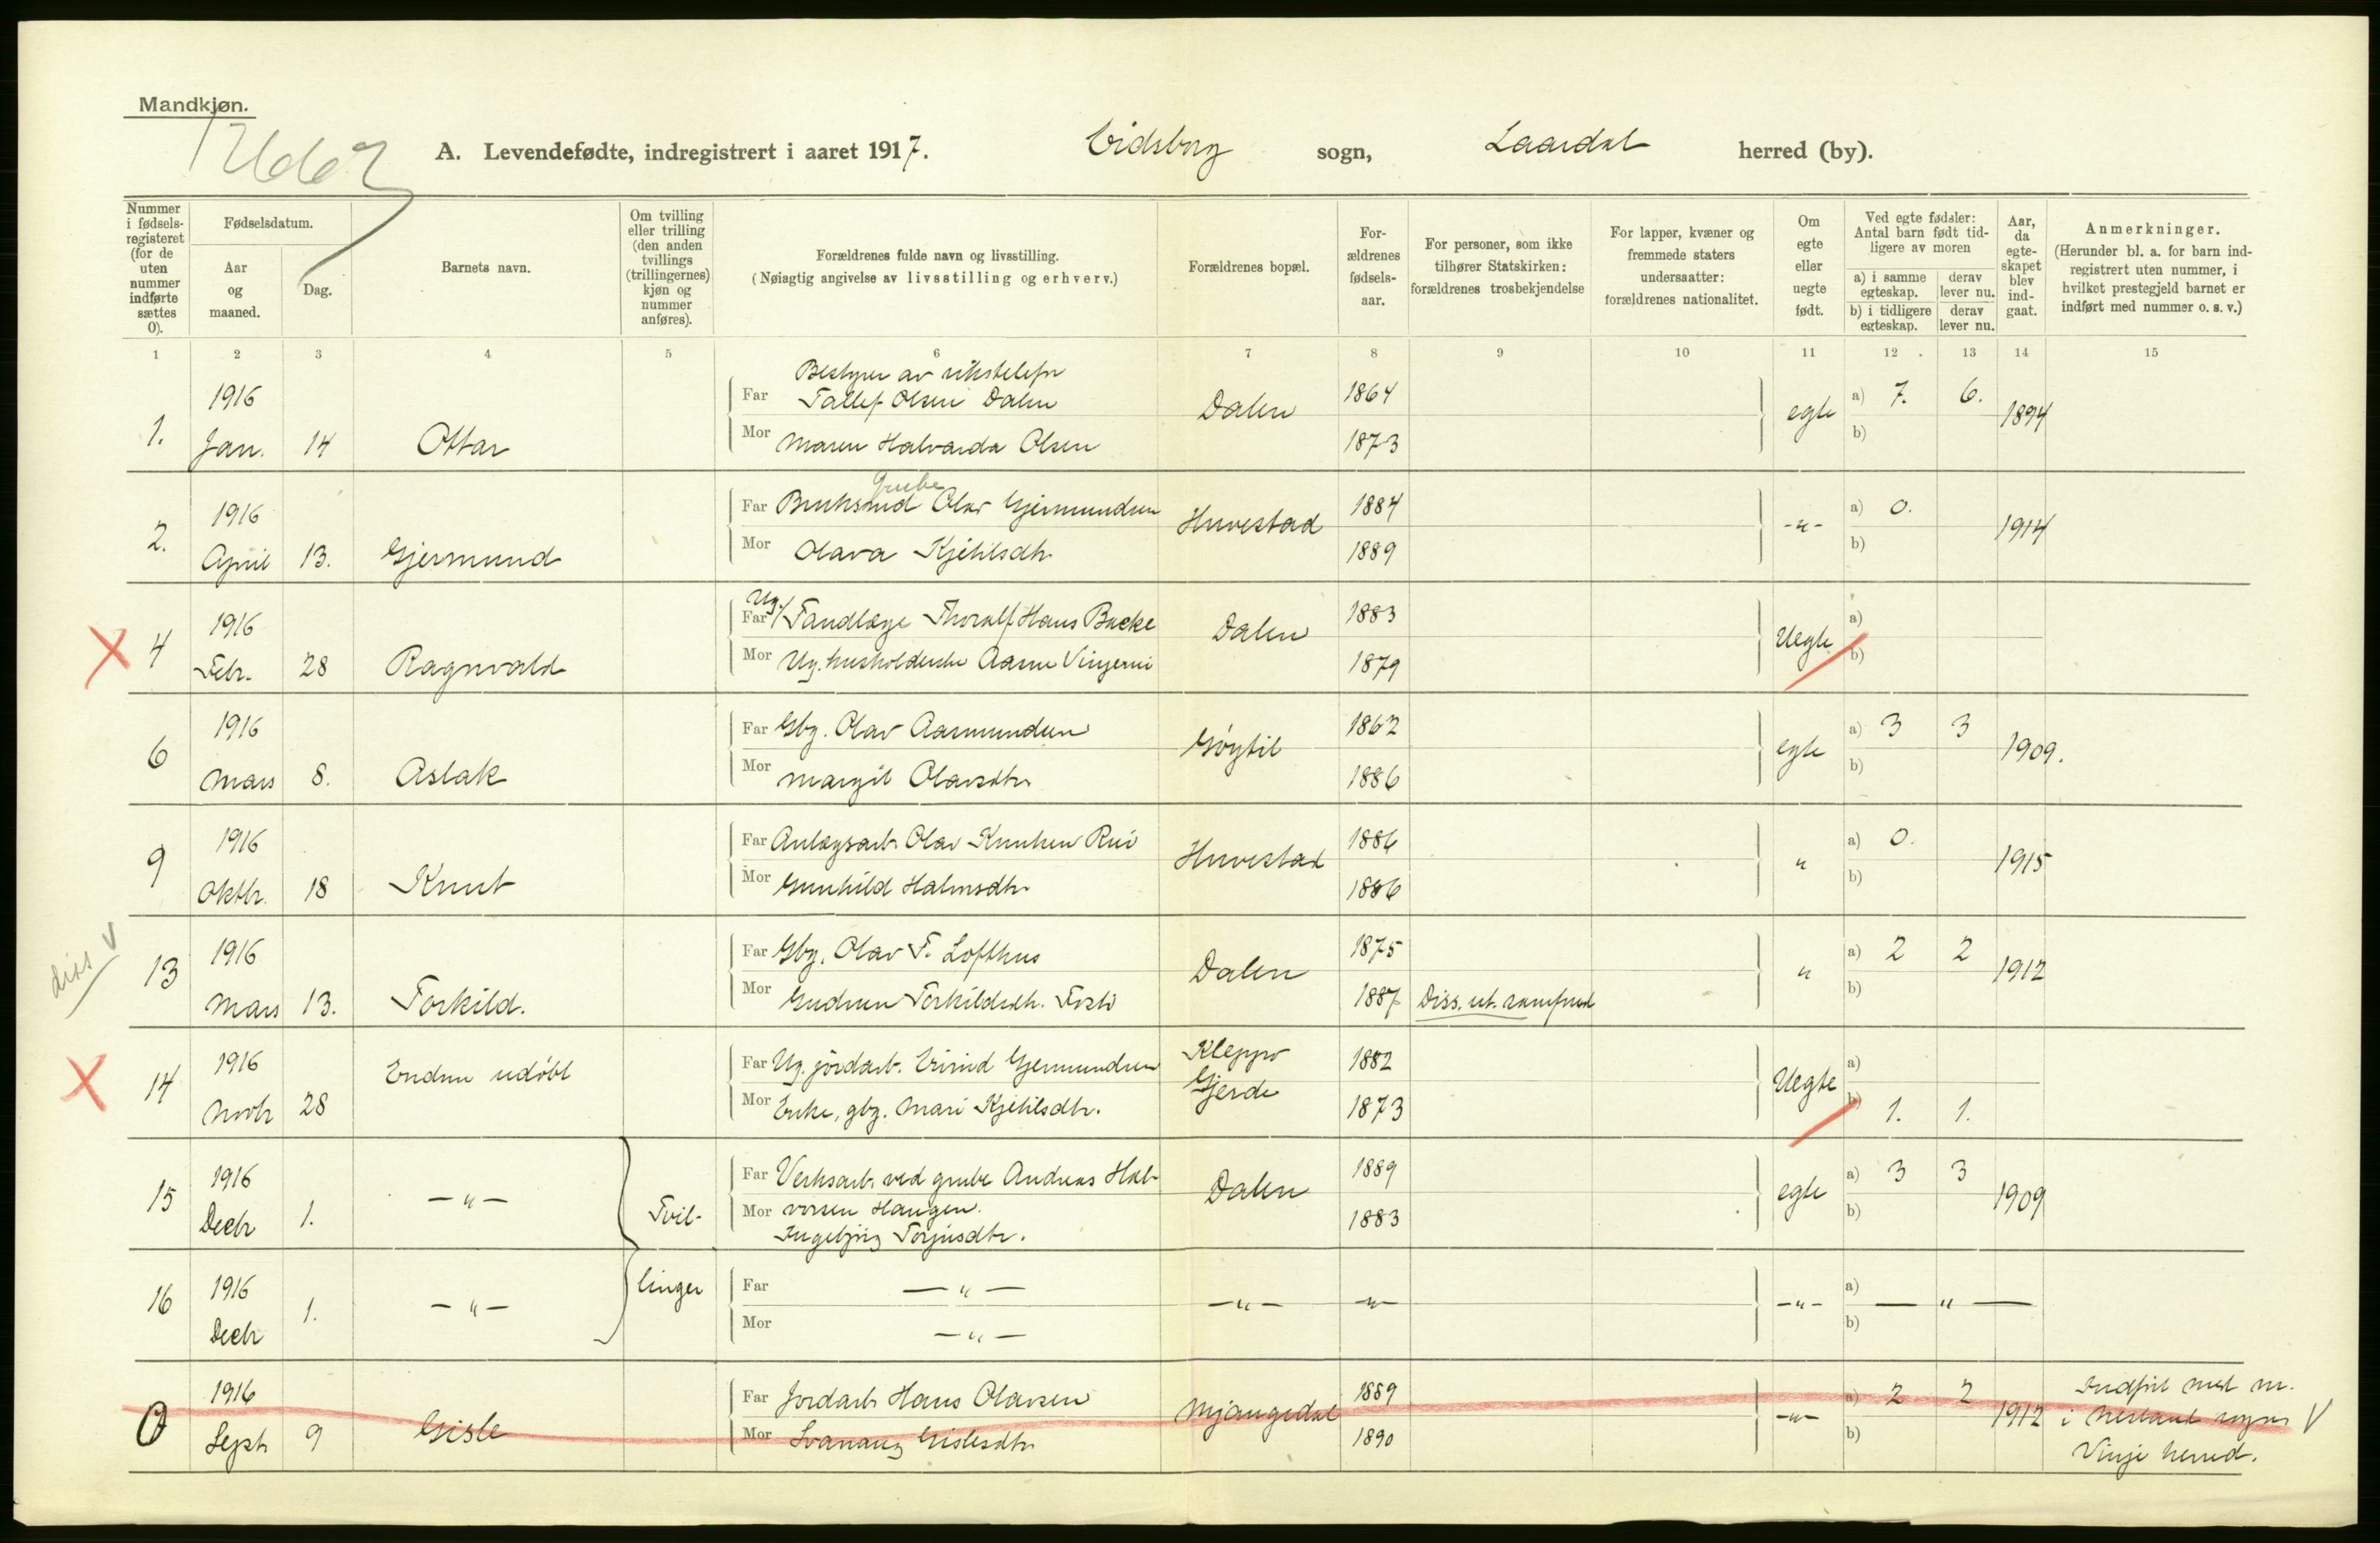 Mandkjøn.
A. Levendefødte, indregistrert i aaret 1917. Eidsborg sogn, Laardal herred (by).
Nummer i fødsels-registeret (for de uten nummer indførte sættes 0).
Fødselsdatum.
Aar og maaned.
Dag.
Barnets navn.
Om tvilling eller trilling (den anden tvillings (trillingernes) kjøn og nummer anføres).
Forældrenes fulde navn og livsstilling.
(Nøiagtig angivelse av livsstilling og erhverv.)
Forældrenes bopæl.
For-ældrenes fødsels-aar.
For personer, som ikke tilhører Statskirken: forældrenes trosbekjendelse
For lapper, kvæner og fremmede staters undersaatter: forældrenes nationalitet.
Om egte eller uegte født.
Ved egte fødsler: Antal barn født tid-ligere av moren
a) i samme egteskap. derav lever nu.
b) i tidligere egteskap. derav lever nu.
Aar, da egte-skapet blev ind-gaat.
Anmerkninger.
(Herunder bl. a. for barn ind-registrert uten nummer, i hvilket prestegjeld barnet er indført med nummer o. s. v.)
1 2 3 4 5 6 7 8 9 10 11 12 13 14 15
Bestyrer av rikstelefon
1. 1916 Jan. 14 Ottar
Far Tallef Olsen Dalen Dalen 1864 egte a) 7. 6. 1894
Mor Maren Halvarda Olsen 1873 b)
Grube
2. 1916 April 13. Gjermund
Far Bruksarb Olav Gjermundsen Huvestad 1884 -"- a) 0. 1914
Mor Olava Kjetilsdtr. 1889 b)
4 1916 Febr. 28 Ragnvald
Ug.
Far Tandlæge Thoralf Hans Backe Dalen 1883 Uegte a)
Mor Ug. husholderske Aasne Vingerni 1879 b)
6 1916 Mars 8. Aslak
Far Gbg. Olav Aasmundsen Gøytil 1862 egte a) 3 3 1909.
Mor Margit Olavsdtr. 1886 b)
9 1916 Oktbr. 18 Knut
Far Anlægsarb. Olav Knutsen Rui Huvestad 1886 " a) 0. 1915
Mor Gunhild Halvorsdtr. 1886 b)
diss V
13 1916 Mars 13. Torkild.
Far Gbg. Olav T. Lofthus Dalen 1875 " a) 2 2 1912
Mor Gudrun Torkildsdtr. 1887 Diss. ut. samfund b)
14 1916 Novbr 28 Endnu udøbt
Far Ug. jordarb. Eivind Gjermundsen Kleppo 1882 Uegte a)
Mor Enke, gbg. Mari Kjetilsdtr. Gjerde 1873 b) 1. 1.
15 1916 Decbr 1. -"- Tvil-
Far Verksarb. ved grube Andreas Hal- Dalen 1889 egte a) 3 3 1909
Mor vorsen Haugen. 1883 b)
Ingebjørg Torjusdtr.
16 1916 Decbr 1. -"- linger
Far -"- -"- -"- -"- a) -"-
Mor -"- b)
0 1916 Septr. 9 Gisle
Far Jordarb. Hans Olavsen Mjaugedal 1889 -"- a) 2 2 1912
Mor Svanaug Gislesdtr. 1890 b)
Indført med nr.
i Nesland sogn V
Vinje herred.